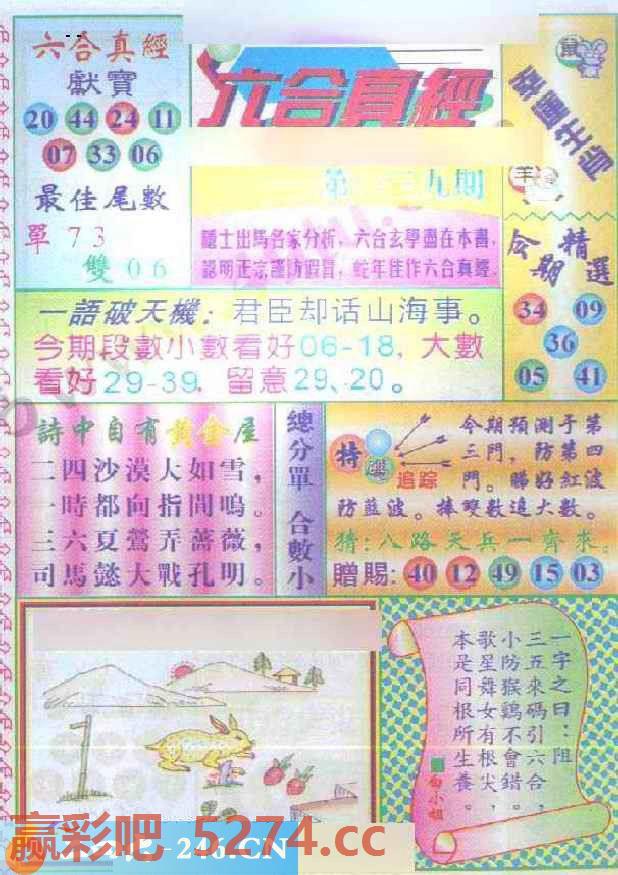 六合真經
獻寶
20 44 24 11
07 33 06
最佳尾數
單 73
雙 06
六合真經
九期
隱士出馬名家分析，六合玄學盡在本書，
認明正宗謹防假冒，蛇年佳作六合真經。
鼠
幸運生肖
羊
今期精選
34 09
36
05 41
一語破天機：君臣却话山海事。
今期段數小數看好06-18，大數
看好29-39，留意29、20。
詩中自有黃金屋
二四沙漠大如雪，
一時都向指間鳴。
三六夏鶯弄薔薇，
司馬懿大戰孔明。
總分單 合數小
特碼
追踪
今期預測于第
三門，防第四
門。睇好紅波
防藍波。捧雙數追大數。
猜：八路天兵一齊來。
贈賜：40 12 49 15 03
一字之曰：阻
三五來碼引六合，
小防猴鷄不會錯。
歌星舞女有根尖，
本是同根所生養。
白小姐
赢彩吧 5274.cc
246.CN